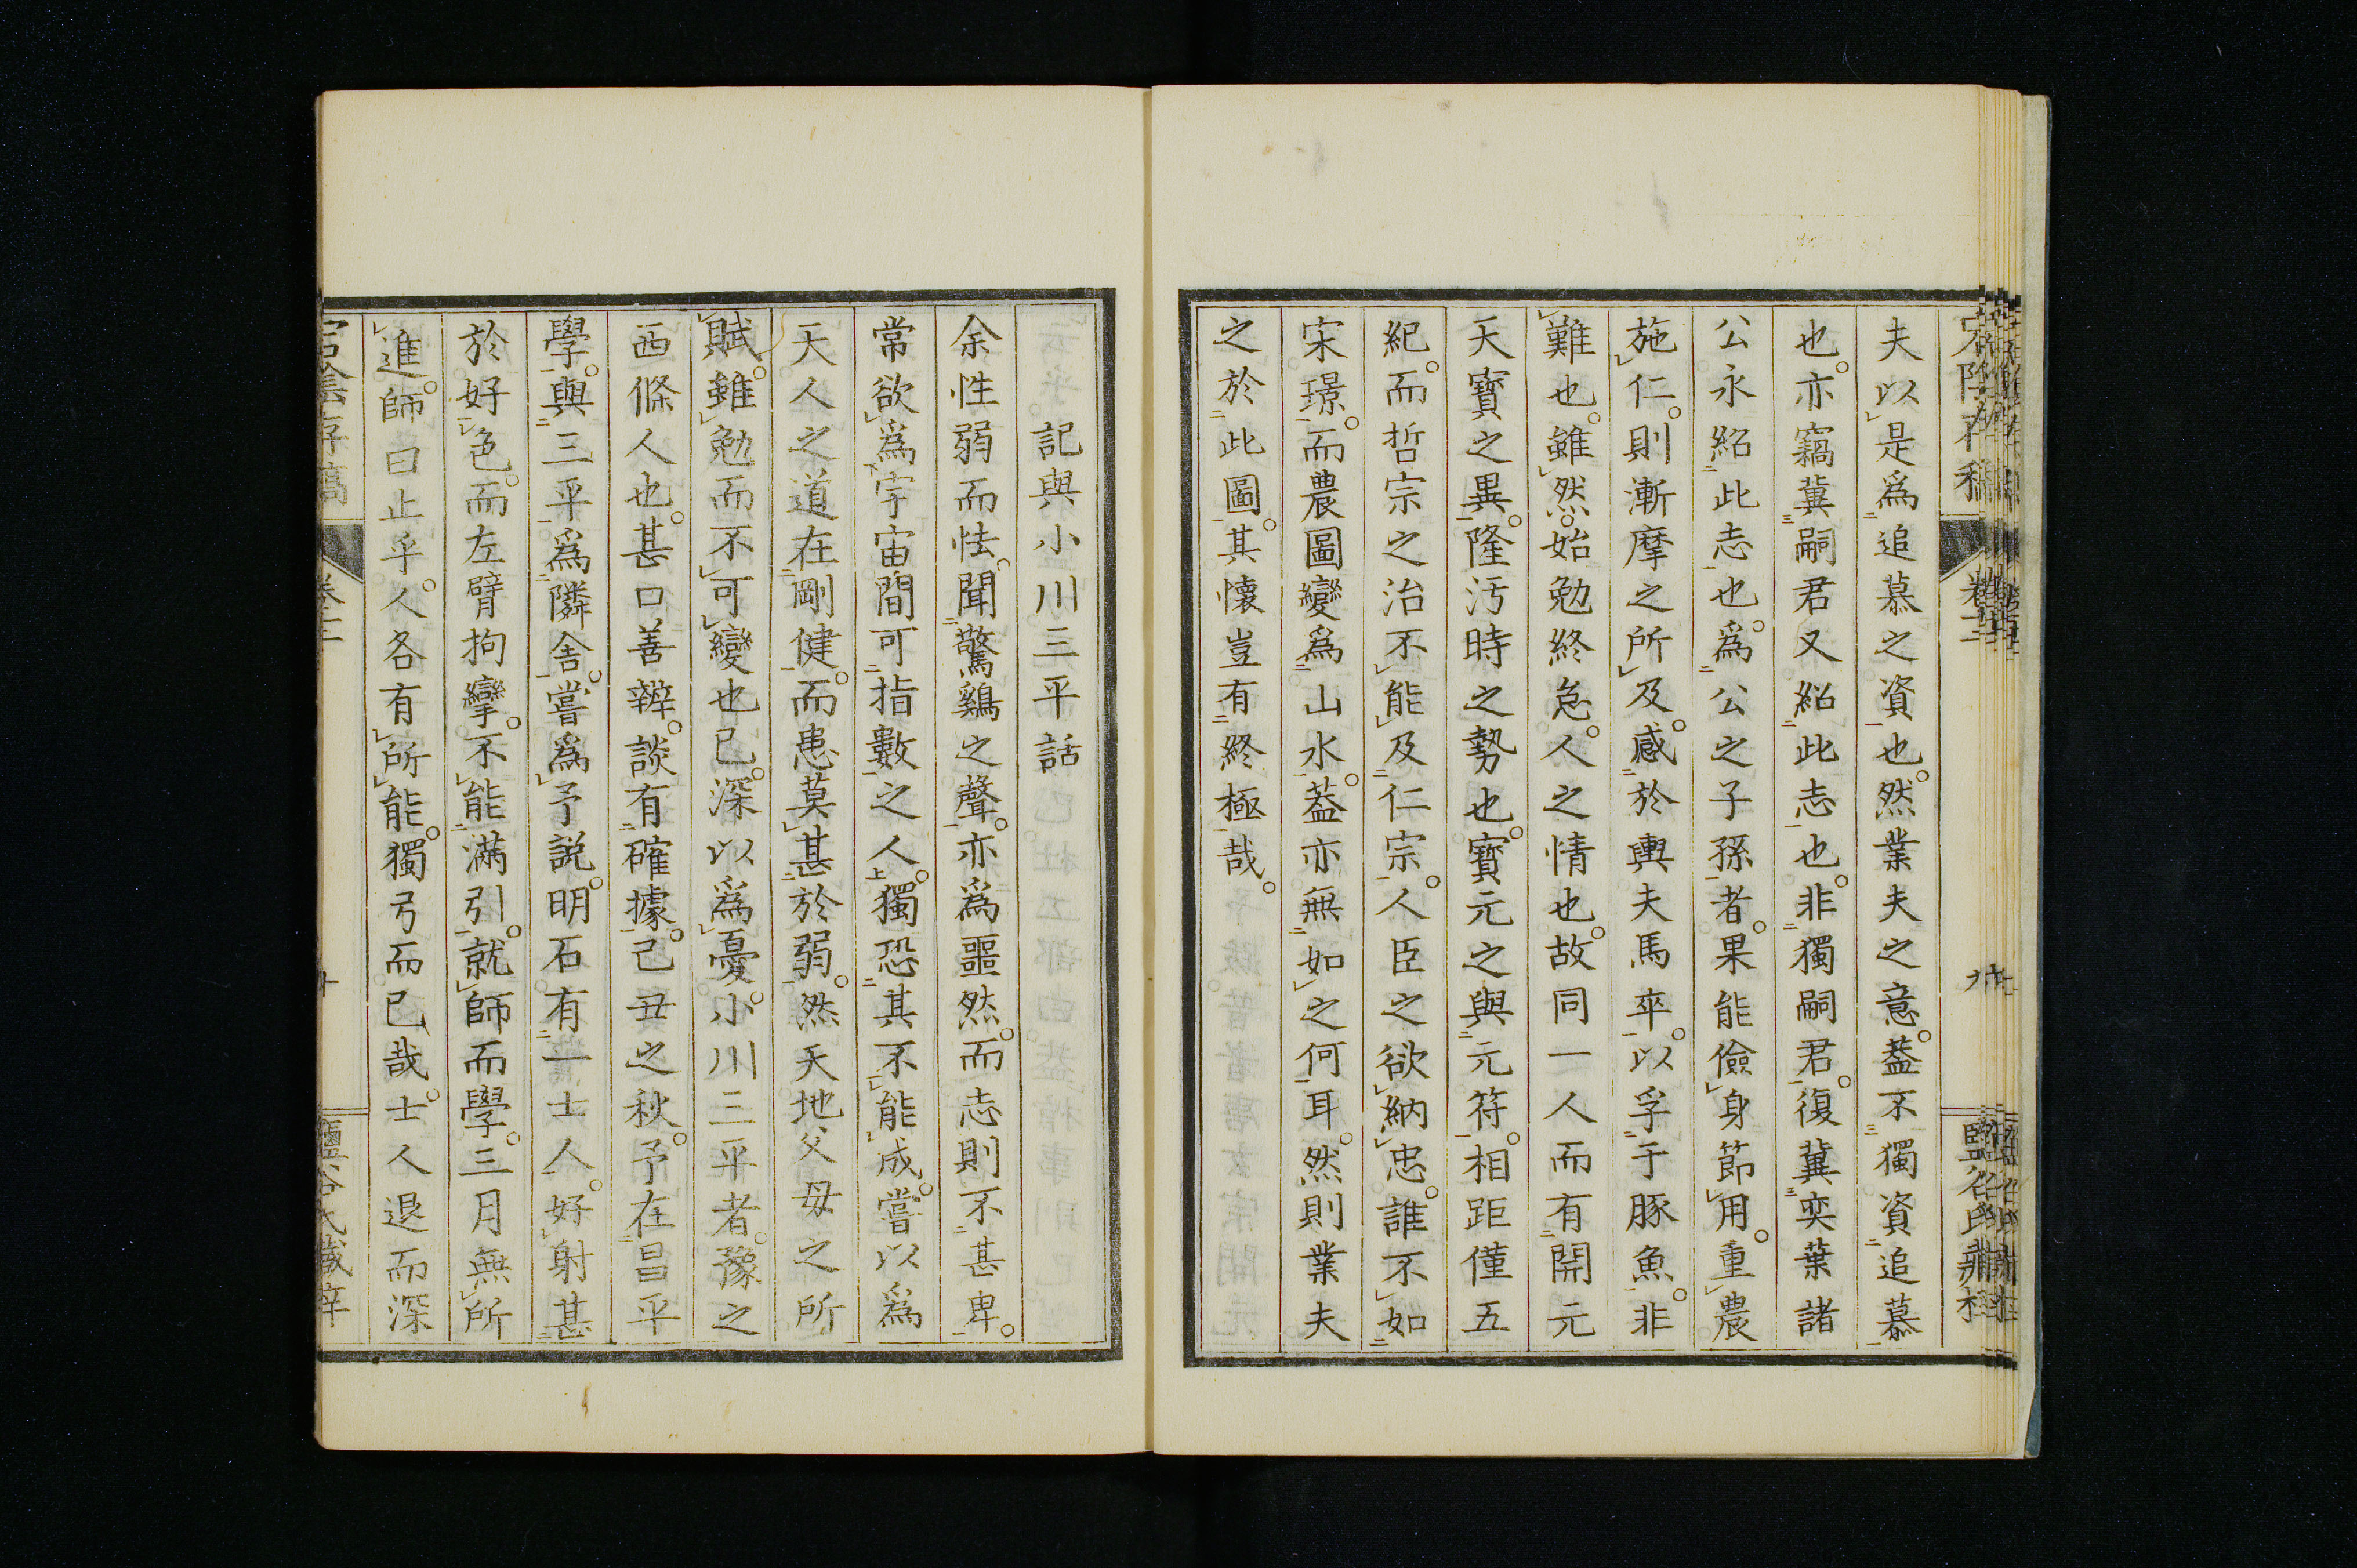 夫以是爲追慕之資也。然業夫之意。蓋不獨資追慕
也。亦竊冀嗣君又紹此志也。非獨嗣君。復冀奕葉諸
公永紹此志也。爲公之子孫者。果能儉身節用。重農
施仁。則漸摩之所及。感於輿夫馬卒。以孚于豚魚。非
難也。雖然。始勉終怠。人之情也。故同一人而有開元
天寶之異。隆汚時之勢也。寶元之與元符。相距僅五
紀。而哲宗之治不能及仁宗。人臣之欲納忠。誰不如
宋璟。而農圖變爲山水。蓋亦無如之何耳。然則業夫
之於此圖。其懷豈有終極哉。
記與小川三平話
余性弱而怯。聞驚鷄之聲。亦爲噩然。而志則不甚卑。
常欲爲宇宙間可指數之人。獨恐其不能成。嘗以爲
天人之道在剛健。而患莫甚於弱。然天地父母之所
賦。雖勉而不可變也已。深以爲憂。小川三平者。豫之
西條人也。甚口善辯。談有確據。己丑之秋。予在昌平
學。與三平爲隣舎。嘗爲予説。明石有一士人。好射甚
於好色。而左臂拘攣。不能滿引。就師而學。三月無所
進。師曰止乎。人各有所能。獨弓而已哉。士人退而深
宕陰存稿
卷十二
鹽谷氏藏梓